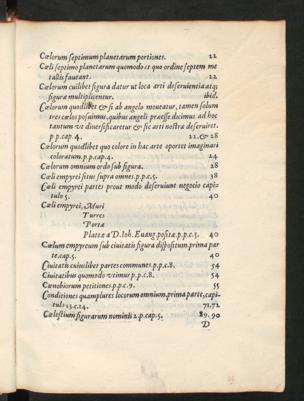 Cœlorum septimum planetarum portiones. 22
Cœli septimo planetarum quomodo et quo ordine septem me
tallis faueant. 22
Cœlorum cuilibet figura datur ut loca arti deseruientia atq;
figuræ multiplicentur. ibid.
Cœlorum quodlibet & si ab angelo moueatur, tamen solum
tres cœlos posuimus, quibus angeli præesse dicimus ad hoc
tantum ut diuersificaretur & sic arti nostræ deseruiret.
p.p.cap.4. 22.&28
Cœlorum quodlibet quo colore in hac arte oportet imaginari
coloratum.p.p.cap.4. 24
Cœlorum omnium ordo sub figura. 28
Cœli empyrei situs supra omnes.p.p.c.5. 38
Cœli empyrei partes prout modo deseruiunt negocio capi
tulo 5. 40
Cœli empyrei, Muri
Turres
Portæ
Plateæ a D.Ioh.Euang.positæ.p.p.c.5. 40
Cœlum empyreum sub ciuitatis figura dispositum.prima par
te.cap.5. 40
Ciuitatis cuiuslibet partes communes.p.p.c.8. 54
Ciuitatibus quomodo vtimur p.p.c.8. 54
Cœnobiorum petitiones p.p.c.9. 55
Conditiones quamplures locorum omnium,prima parte,capi
tulis 13.c.14. 71,72
Cœlestium figurarum nominis 2.p.cap.5. 89.90
D